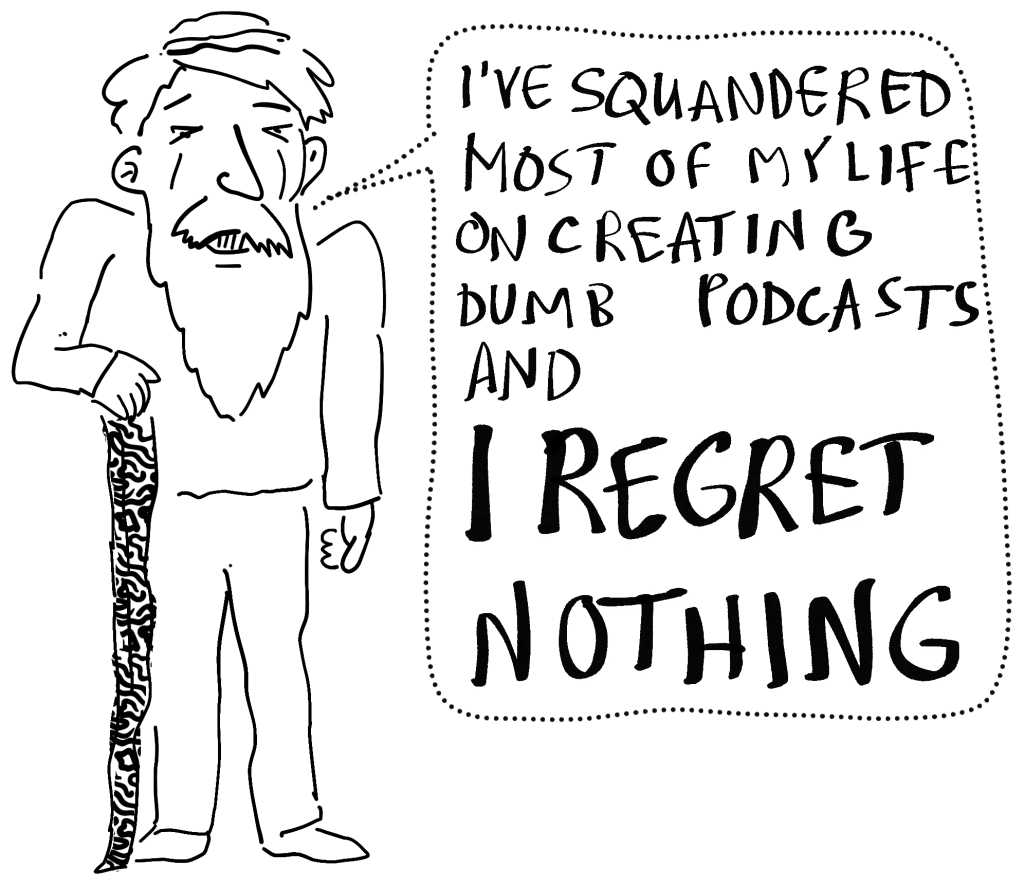 I'VE SQUANDERED
MOST OF MY LIFE
ON CREATING
DUMB PODCASTS
AND
I REGRET
NOTHING